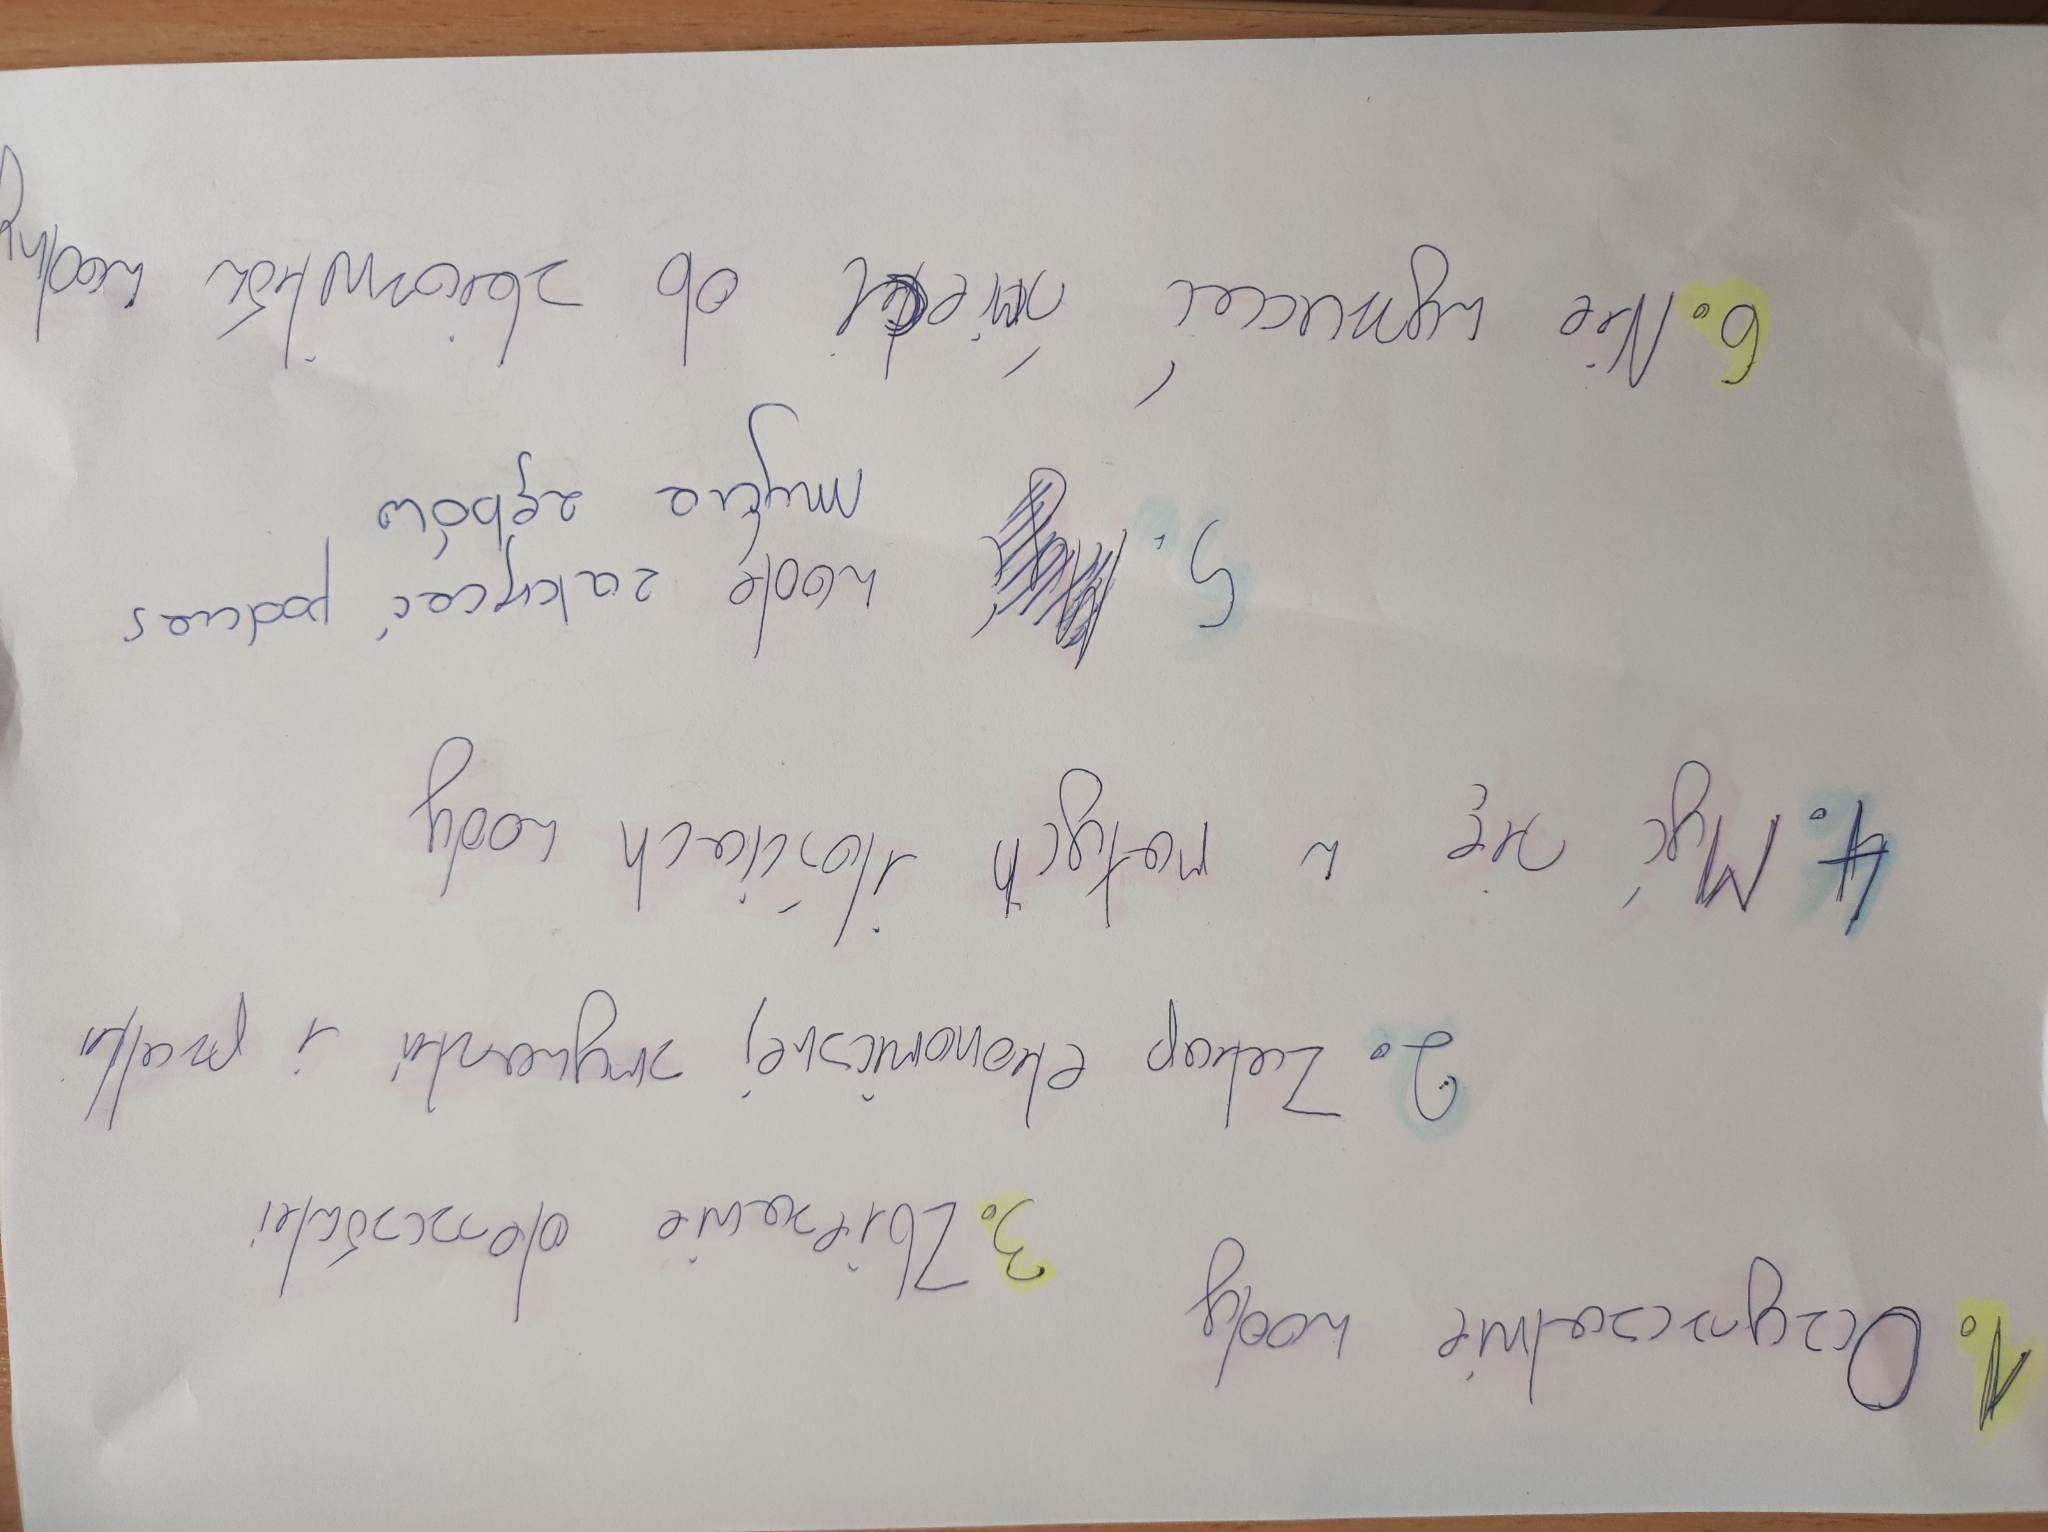 1. Oczyszczalnie wody
3. Zbieranie deszczówki
2. Zakup ekonomicznej zmywarki i pralki
4. Myć się w małych ilościach wody
5. wodę zakręcać podczas
mycia zębów
6. Nie wyrzucać śmieci do zbiorników wodny